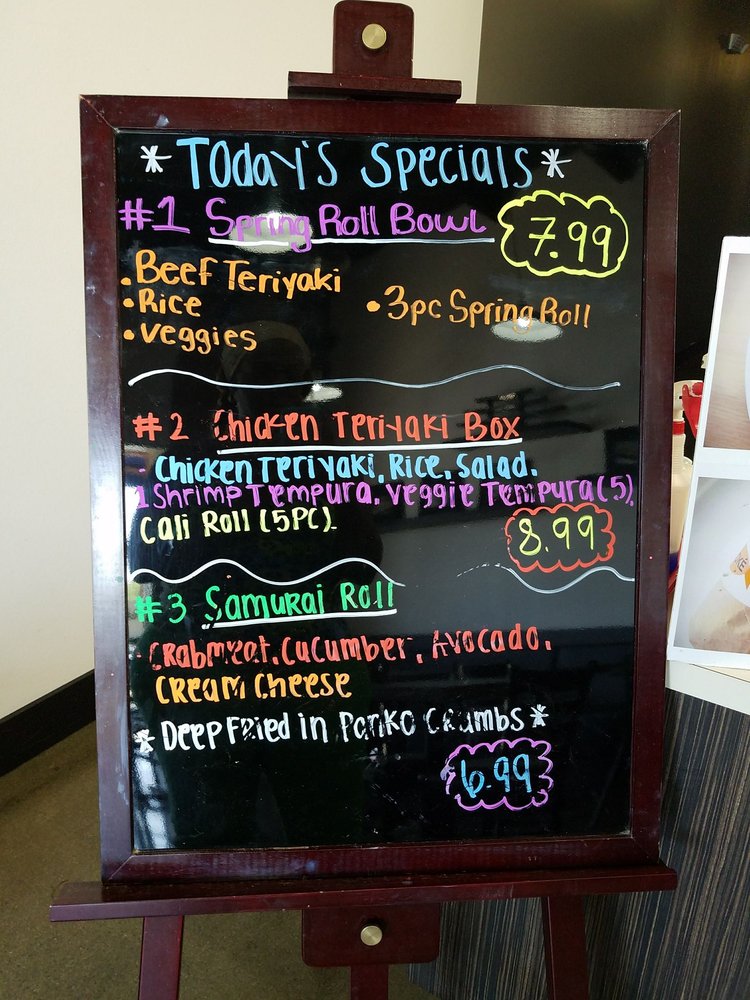 *TODAY'S SPECIALS*
#1 Spring Roll Bowl 7.99
• Beef Teriyaki
• Rice • 3pc Spring Roll
• Veggies
#2 Chicken Teriyaki Box
- Chicken Teriyaki, Rice, Salad.
1 Shrimp Tempura, Veggie Tempura (5),
Cali Roll (5PC).
8.99
#3 Samurai Roll
- Crabmeat, Cucumber, Avocado,
Cream Cheese
* Deep Fried in Panko Crumbs *
6.99